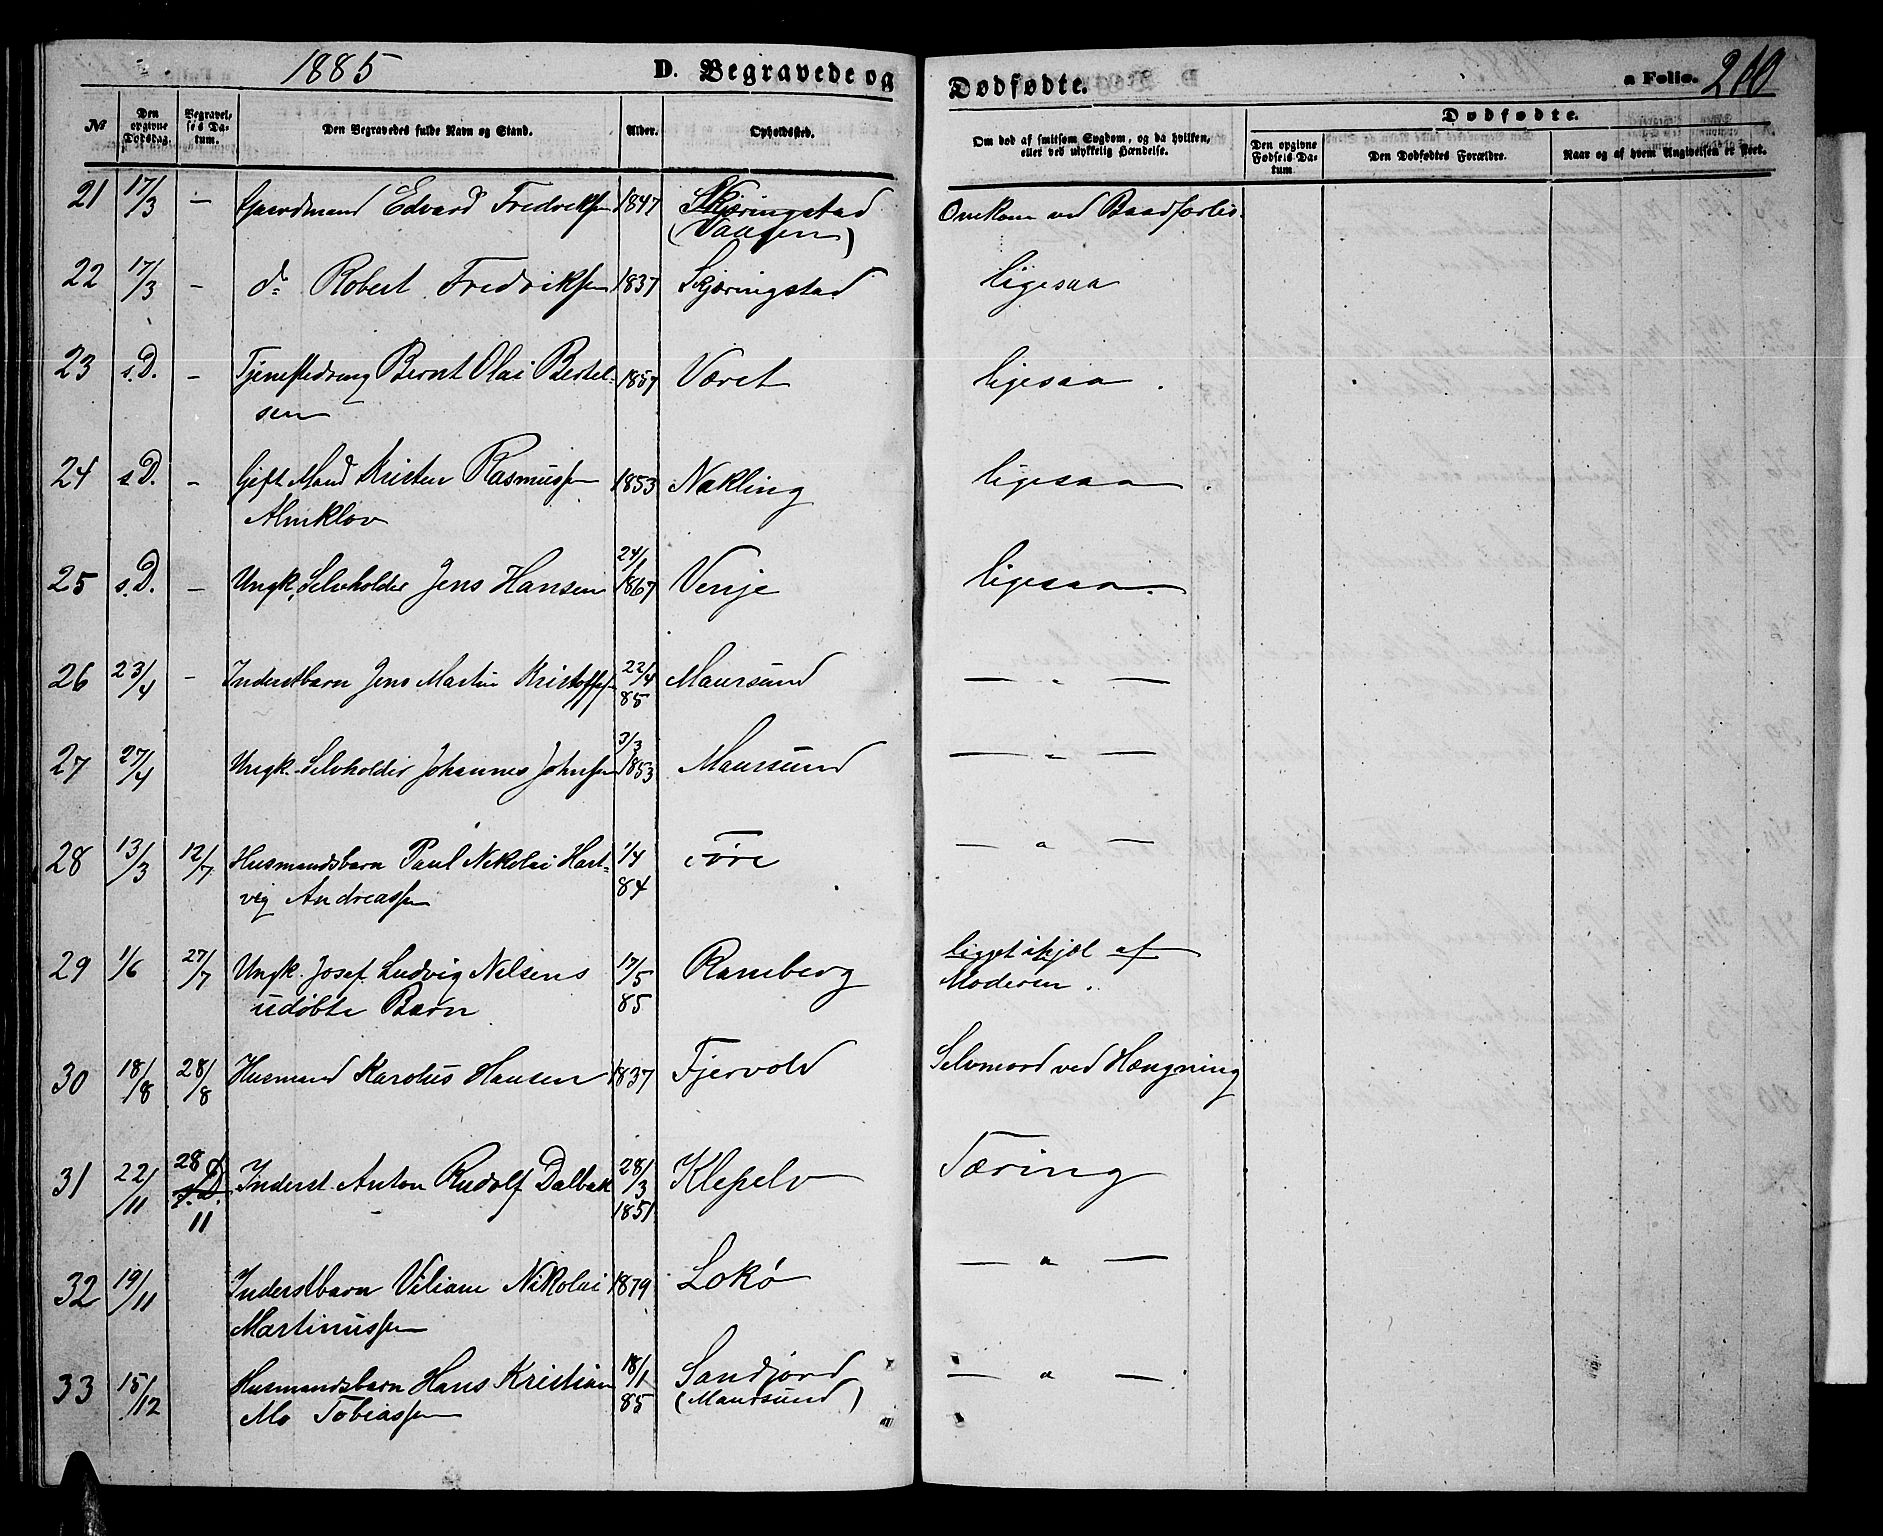 1885 D. Begravede og Dødfødte. a Folio. 210
№ Den opgivne Dødsdag. Begravelses Datum. Den Begravedes fulde Navn og Stand. Alder. Opholdssted. Om død af smitsom Sygdom, og da hvilken, eller ved ulykkelig Hændelse. Dødfødte. Den opgivne Fødsels Datum. Den Dødfødtes Forældre. Naar og af hvem Angivelsen er skeet.
21 17/3 — Gaardmand Edvard Fredriksen 1847 Skjæringstad Omkom ved Baadforlis.
(Vaagen)
22 17/3 - do Robert Fredriksen 1837 Skjæringstad ligesaa
23 s.D. - Tjenestedreng Bernt Olai Bertel- 1857 Været ligesaa .
sen
24 s.D. - Gift Mand Kristen Rasmussen 1853 Nakling ligesaa .
Almklov
25 s.D. — Ungk. Selvholder Jens Hansen 24/1 1867 Venje ligesaa.
26 23/4 - Inderstbarn Jens Martin Kristoffersen 22/4 85 Maursund — " —
27 27/4 Ungk. Selvholder Johannes Johnsen 3/3 1853 Maursund — " —
28 13/3 12/7 Husmandsbarn Paul Nikolai Hart- 1/4 84 Tøre — " —
vig Andreassen
29 1/6 27/7 Ungk. Josef Ludvig Nelsens 17/5 85 Ramberg ligget ihjel af
udøbte Barn Moderen.
30 18/8 28/8 Husmand Karolus Hansen 1837 Fjervold Selvmord ved Hængning
31 22/11 28 s.D. 11 Inderst Anton Rudolf Dalbak 28/3 1851 Klepelv Tæring
32 19/11 Inderstbarn Viliam Nikolai 1879 Lokø — " —
Martinussen
33 15/12 Husmandsbarn Hans Kristian 18/1 85 Sandjord — " —
Mo Tobiassen (Maursund)